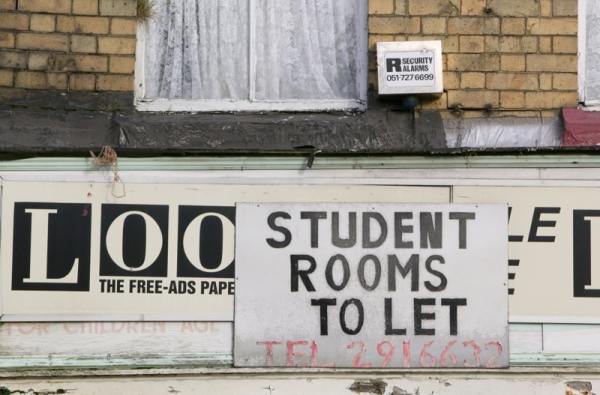 R SECURITY
ALARMS
051·727 6699
LOO
THE FREE-ADS PAPE
LE
STUDENT
ROOMS
TO LET
TEL 2916632
FOR CHILDREN AGE